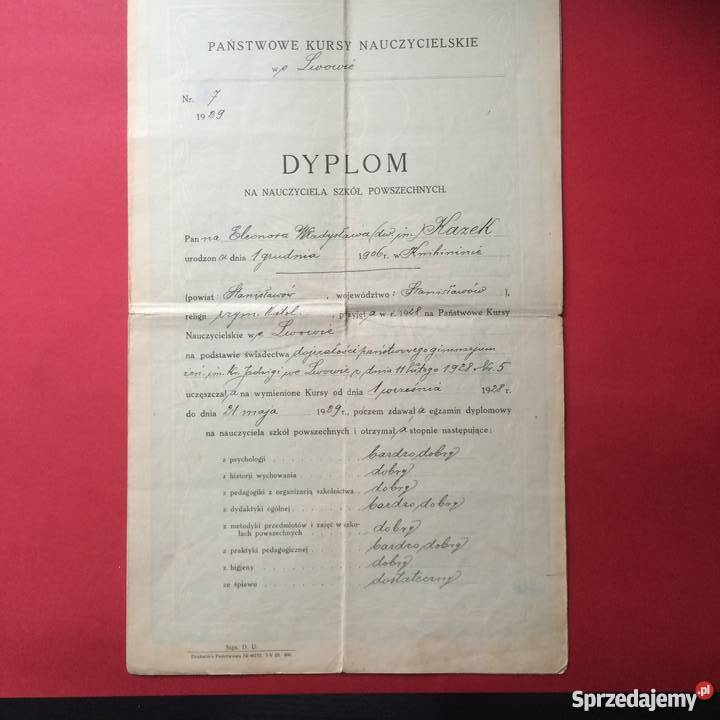 PAŃSTWOWE KURSY NAUCZYCIELSKIE
w,e Lwowie
Nr. 7
1929
DYPLOM
NA NAUCZYCIELA SZKÓŁ POWSZECHNYCH.
Panna Eleonora Władysława (dw. im.) Kazek
urodzona dnia 1 grudnia 1906 r. w Knihininie
(powiat: Stanisławów, województwo: Stanisławów),
religji rzym. katol. przyjęta w r. 1928 na Państwowe Kursy
Nauczycielskie w,e Lwowie
na podstawie świadectwa dojrzałości państwowego gimnazjum
żeń. im. Kr. Jadwigi we Lwowie z dnia 11 lutego 1928 Nr. 5
uczęszczała na wymienione Kursy od dnia 1 września 1928 r.
do dnia 21 maja 1929 r., poczem zdawała egzamin dyplomowy
na nauczyciela szkół powszechnych i otrzymała stopnie następujące:
z psychologji . . . . . . . . bardzo dobry
z historji wychowania . . . . . . dobry
z pedagogiki z organizacją szkolnictwa . dobry
z dydaktyki ogólnej . . . . . . bardzo dobry
z metodyki przedmiotów i zajęć w szko-
łach powszechnych . . . . . . dobry
z praktyki pedagogicznej . . . . . bardzo dobry
z higjeny . . . . . . . . dobry
ze śpiewu . . . . . . . . dostateczny
Sygn. D. U.
Drukarnia Państwowa
Sprzedajemy.pl